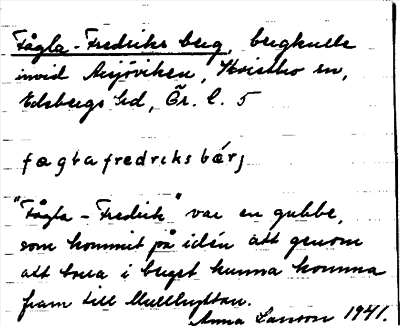 Fågla-Fredriks berg, bergkulle
invid Avjöviken, Kvistbro sn,
Edsbergs hd, Ör. l. 5
faglafredriksbärj
"Fågla-Fredrik" var en gubbe,
som kommit på idén att genom
att borra i berget kunna komma
fram till Mullhyttan.
Anna Larsson 1941.